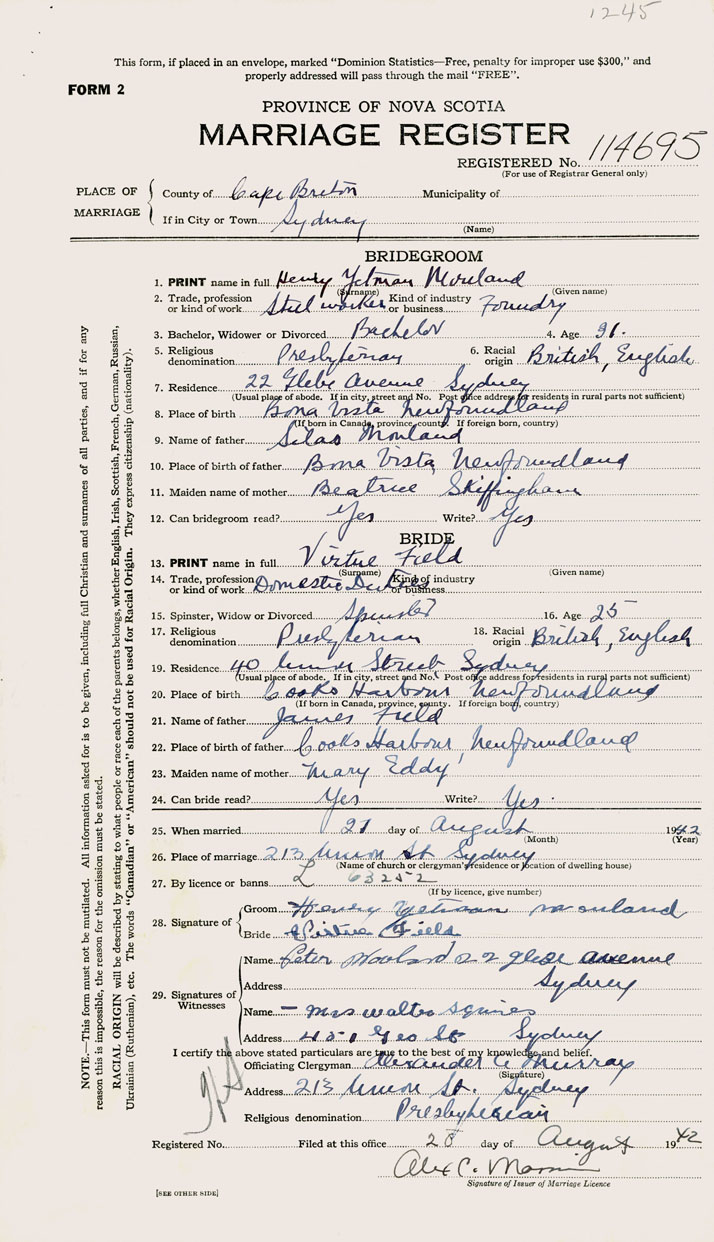 1245
This form, if placed in an envelope, marked “Dominion Statistics—Free, penalty for improper use $300,” and
properly addressed will pass through the mail “FREE”.
FORM 2
PROVINCE OF NOVA SCOTIA
MARRIAGE REGISTER
REGISTERED No. 114695
(For use of Registrar General only)
PLACE OF MARRIAGE
County of Cape Breton Municipality of
If in City or Town Sydney
(Name)
BRIDEGROOM
1. PRINT name in full Henry Yetman
(Surname) (Given name)
2. Trade, profession or kind of work Steel worker Kind of industry or business Foundry
3. Bachelor, Widower or Divorced Bachelor 4. Age
5. Religious denomination Presbyterian 6. Racial origin British, English
7. Residence 22 Glebe Avenue Sydney
(Usual place of abode. If in city, street and No. Post office address for residents in rural parts not sufficient)
8. Place of birth Bona Vista Newfoundland
(If born in Canada, province, county. If foreign born, country)
9. Name of father Silas
10. Place of birth of father Bona Vista, Newfoundland
11. Maiden name of mother Beatrice Skiffingham
12. Can bridegroom read? Yes Write? Yes
BRIDE
13. PRINT name in full Virtue Field
(Surname) (Given name)
14. Trade, profession or kind of work Domestic Duties Kind of industry or business
15. Spinster, Widow or Divorced Spinster 16. Age 25
17. Religious denomination Presbyterian 18. Racial origin British, English
19. Residence 40 Street Sydney
(Usual place of abode. If in city, street and No. Post office address for residents in rural parts not sufficient)
20. Place of birth Cooks Harbour Newfoundland
(If born in Canada, province, county. If foreign born, country)
21. Name of father James Field
22. Place of birth of father Cooks Harbour, Newfoundland
23. Maiden name of mother Mary Eddy
24. Can bride read? Yes Write? Yes
25. When married 21 day of August 1942
(Month) (Year)
26. Place of marriage 213 Union St Sydney
(Name of church or clergyman's residence or location of dwelling house)
27. By licence or banns L 63252
(If by licence, give number)
28. Signature of
Groom Henry Yetman
Bride Virtue Field
29. Signatures of Witnesses
Name Peter 22 glebe avenue
Address Sydney
Name Mrs Walter Squires
Address Geo St Sydney
I certify the above stated particulars are true to the best of my knowledge and belief.
Officiating Clergyman Alexander A Murray
(Signature)
Address 213 Union St. Sydney
Religious denomination Presbyterian
Registered No. Filed at this office 28 day of August 1942
Alex C.
Signature of Issuer of Marriage Licence
[SEE OTHER SIDE]
NOTE.—This form must not be mutilated. All information asked for is to be given, including full Christian and surnames of all parties, and if for any
reason this is impossible, the reason for the omission must be stated.
RACIAL ORIGIN will be described by stating to what people or race each of the parents belongs, whether English, Irish, Scottish, French, German, Russian,
Ukrainian (Ruthenian), etc. The words “Canadian” or “American” should not be used for Racial Origin. They express citizenship (nationality).